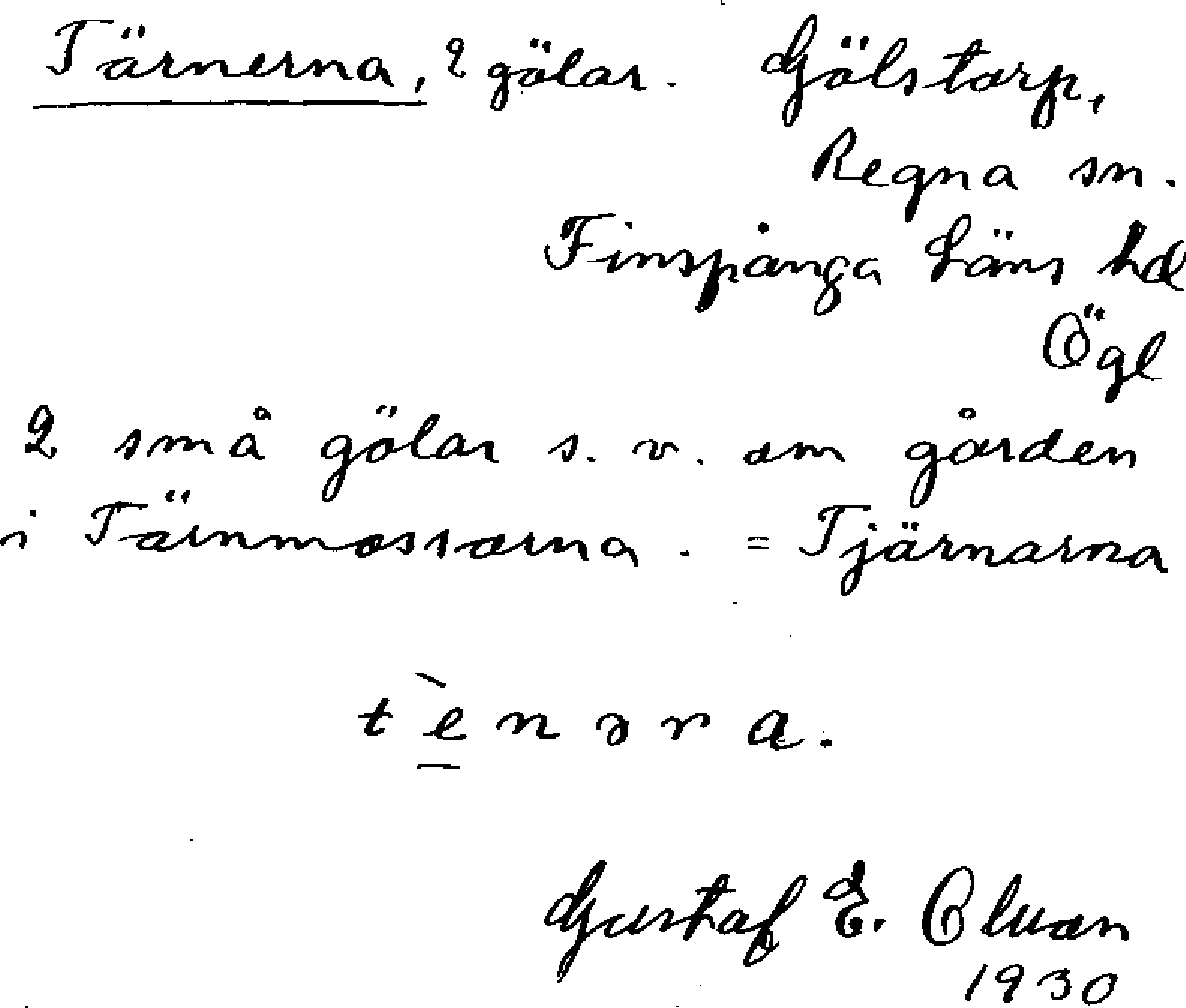 Tärnerna, 2 gölar. Gölstorp,
Regna sn.
Finspånga läns hd
Ögl
2 små gölar s. v. om gården
i Tärnmossarna. = Tjärnarna
t è n ə r a.
Gustaf E.
1930